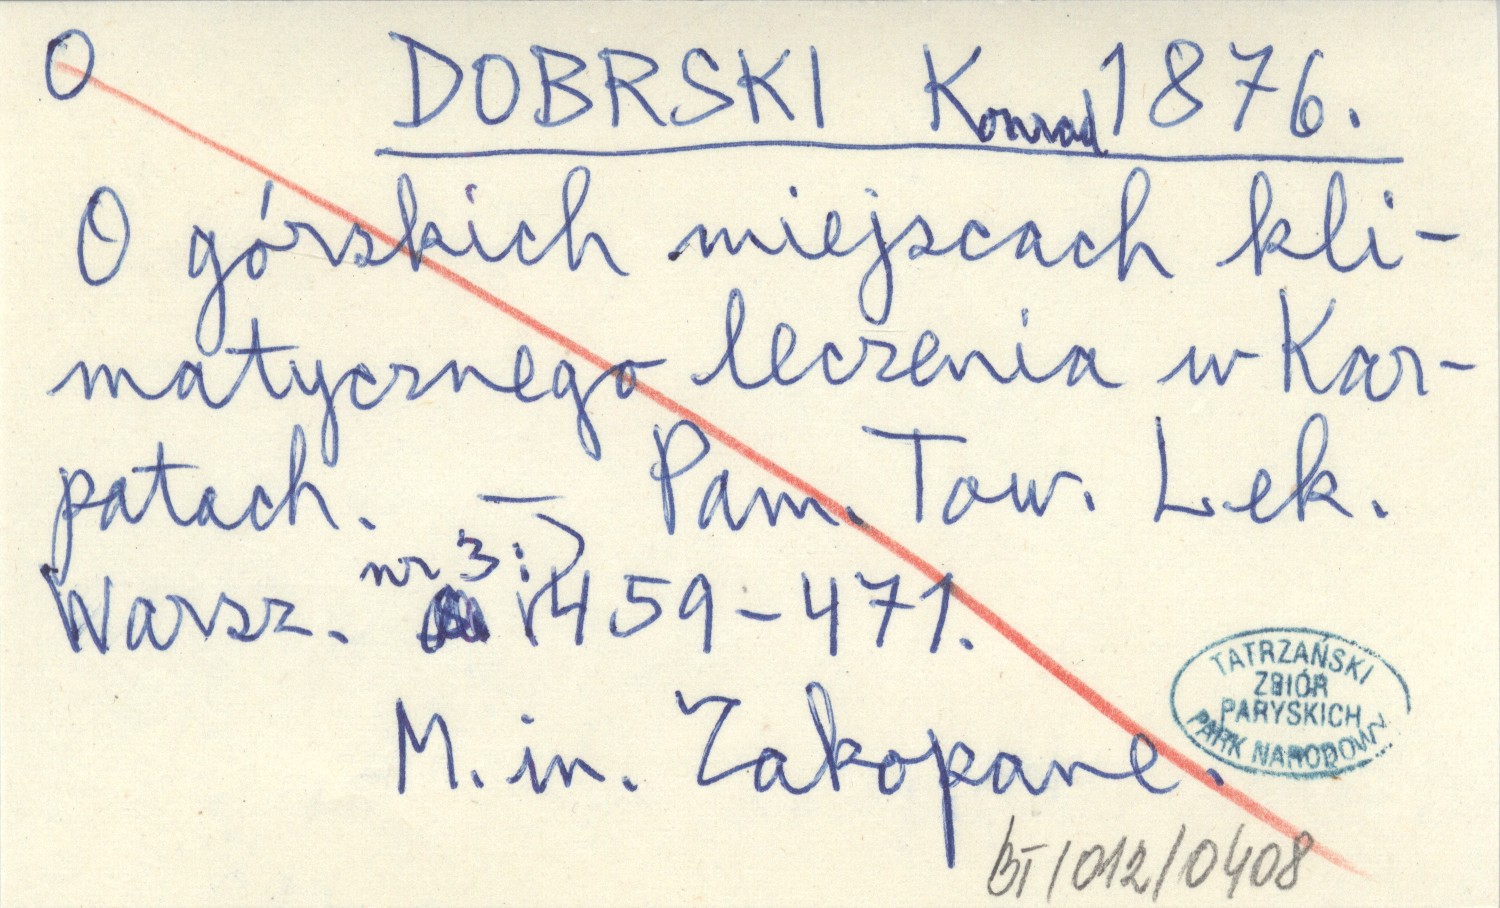 O DOBRSKI Konrad 1876.
O górskich miejscach kli-
matycznego leczenia w Kar-
patach. — Pam. Tow. Lek.
Warsz. nr 3: 459-471.
M. in. Zakopane.
TATRZAŃSKI
ZBIÓR
PARYSKICH
PARK NARODOWY
BT/012/0408